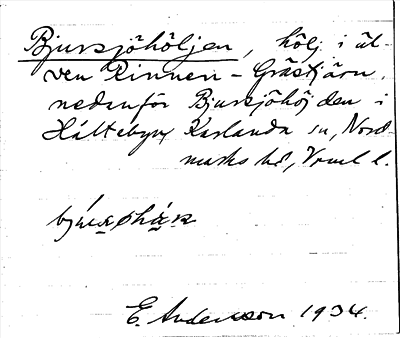 Bjursjöhöljen, hölj i äl-
ven Rinnen - Grästjärn,
nedanför Bjursjöhöjden i
Håltebyn, Karlanda sn, Nord-
marks hd, Vrml l.
E. Andersson 1934.